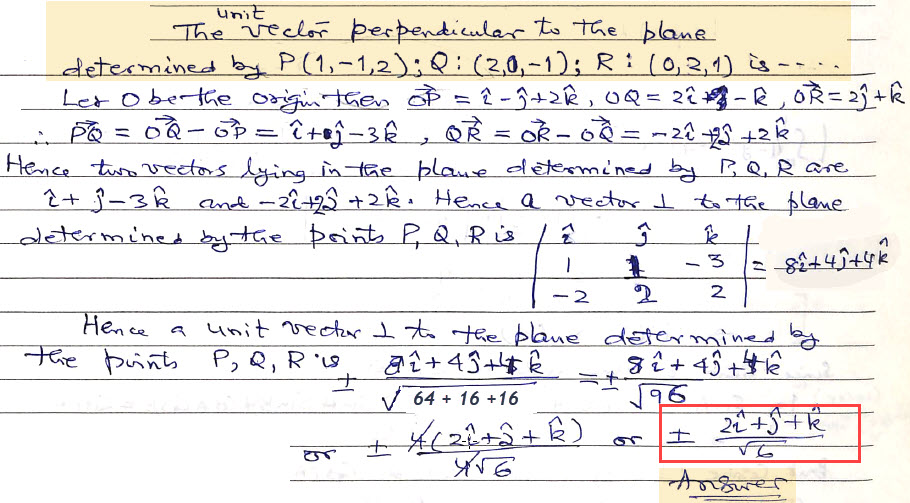 The unit vector perpendicular to the plane
determined by P(1,-1,2); Q: (2,0,-1); R: (0,2,1) is ----.
Let O be the origin then OP⃗ = î - ĵ + 2k̂, OQ = 2î - k̂, OR⃗ = 2ĵ + k̂
∴ PQ⃗ = OQ⃗ - OP⃗ = î + ĵ - 3k̂, QR⃗ = OR⃗ - OQ⃗ = -2î + 2ĵ + 2k̂
Hence two vectors lying in the plane determined by P, Q, R are
î + ĵ - 3k̂ and -2î + 2ĵ + 2k̂. Hence a vector ⊥ to the plane
determined by the points P, Q, R is | î ĵ k̂ |
| 1 1 -3 | = 8î + 4ĵ + 4k̂
| -2 2 2 |
Hence a unit vector ⊥ to the plane determined by
the points P, Q, R is ± (8î + 4ĵ + 4k̂)/√(64 + 16 + 16) = ± (8î + 4ĵ + 4k̂)/√96
or ± 4(2î + ĵ + k̂)/4√6 or ± (2î + ĵ + k̂)/√6
Answer